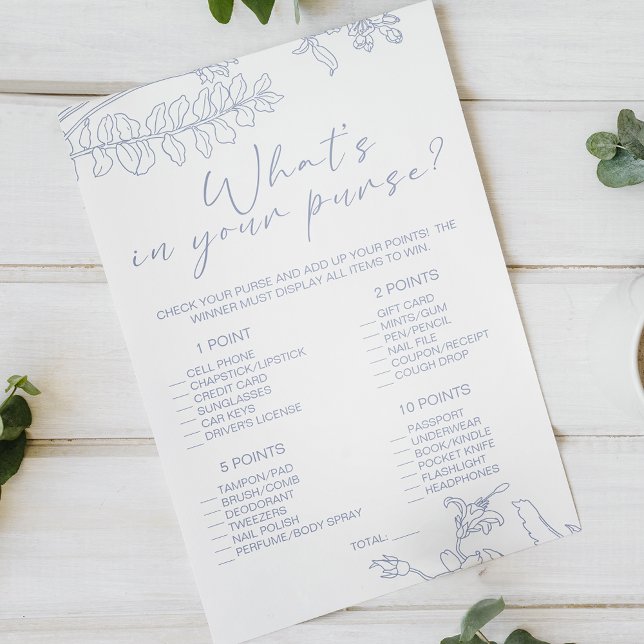 What's
in your purse?
CHECK YOUR PURSE AND ADD UP YOUR POINTS! THE
WINNER MUST DISPLAY ALL ITEMS TO WIN.
1 POINT
__ CELL PHONE
__ CHAPSTICK/LIPSTICK
__ CREDIT CARD
__ SUNGLASSES
__ CAR KEYS
__ DRIVER'S LICENSE
2 POINTS
__ GIFT CARD
__ MINTS/GUM
__ PEN/PENCIL
__ NAIL FILE
__ COUPON/RECEIPT
__ COUGH DROP
5 POINTS
__ TAMPON/PAD
__ BRUSH/COMB
__ DEODORANT
__ TWEEZERS
__ NAIL POLISH
__ PERFUME/BODY SPRAY
10 POINTS
__ PASSPORT
__ UNDERWEAR
__ BOOK/KINDLE
__ POCKET KNIFE
__ FLASHLIGHT
__ HEADPHONES
TOTAL: ____